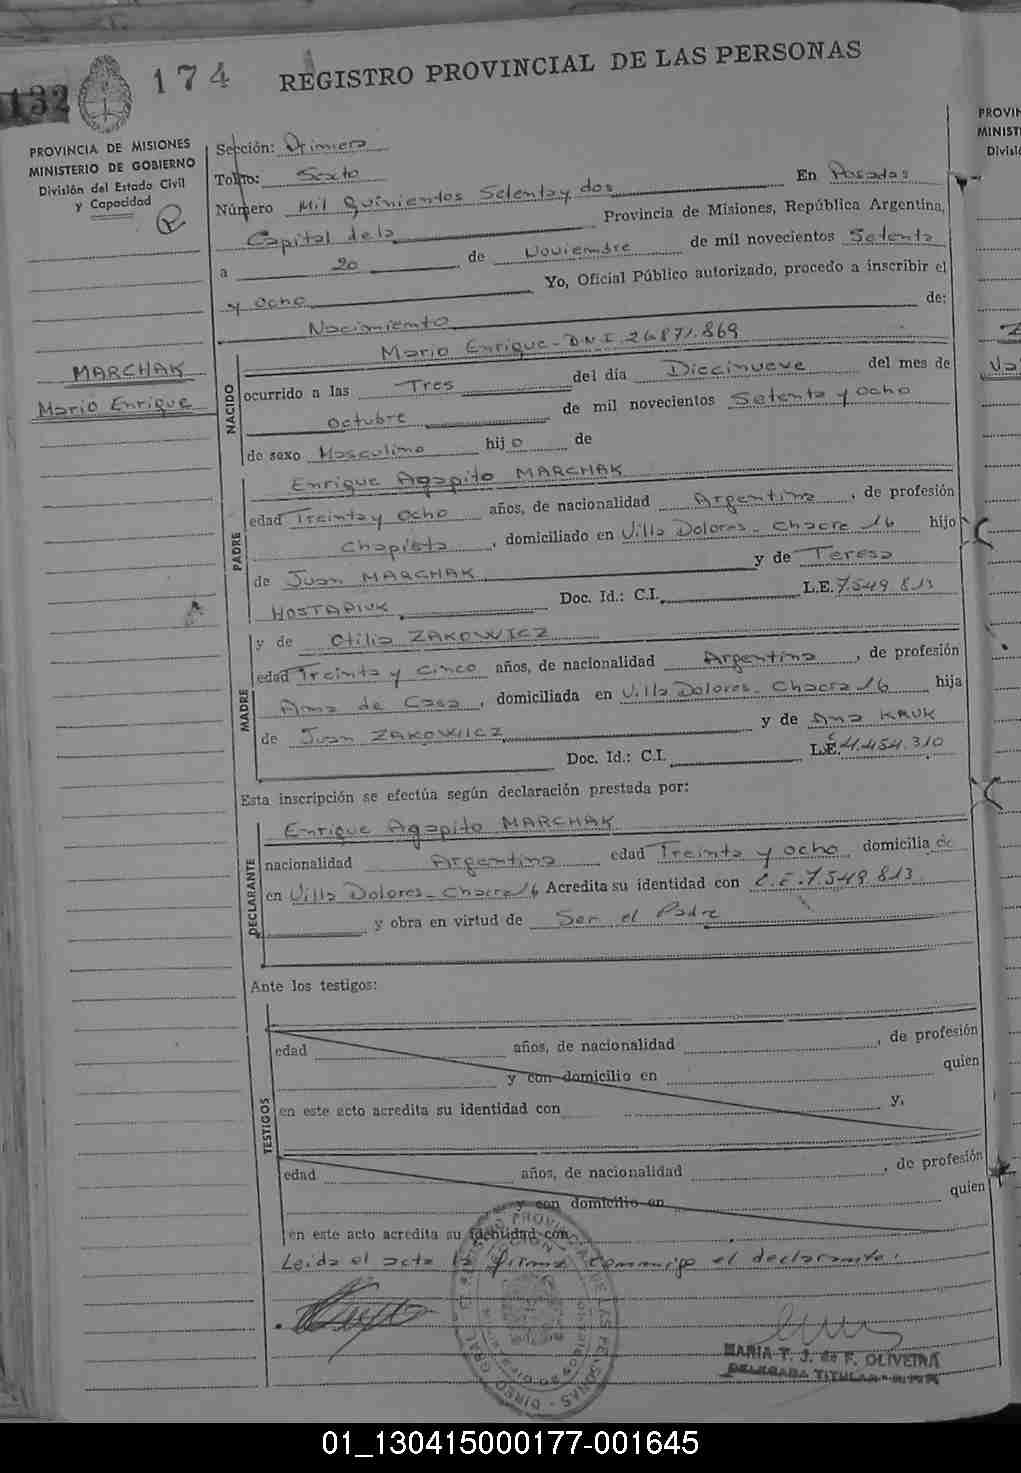 132
174
REGISTRO PROVINCIAL DE LAS PERSONAS
PROVINCIA DE MISIONES
MINISTERIO DE GOBIERNO
División del Estado Civil
y Capacidad
R
MARCHAK
Mario Enrique
Sección: Primera
Tomo: Sexto
Número Mil Quinientos Setenta y dos En Posadas
Capital de la Provincia de Misiones, República Argentina,
a 20 de Noviembre de mil novecientos Setenta
y Ocho Yo, Oficial Público autorizado, procedo a inscribir el
Nacimiento de:
NACIDO
Mario Enrique - D.N.I. 26.871.869
ocurrido a las Tres del día Diecinueve del mes de
Octubre de mil novecientos Setenta y Ocho
de sexo Masculino hijo de
PADRE
Enrique Agapito MARCHAK
edad Treinta y Ocho años, de nacionalidad Argentina, de profesión
Chapista, domiciliado en Villa Dolores - Chacra 16 hijo
de Juan MARCHAK y de Teresa
HOSTAPIUK Doc. Id.: C.I. L.E. 7.549.813
MADRE
y de Otilia ZAKOWICZ
edad Treinta y Cinco años, de nacionalidad Argentina, de profesión
Ama de Casa, domiciliada en Villa Dolores - Chacra 16 hija
de Juan ZAKOWICZ y de Ana KRUK
Doc. Id.: C.I. L.C. 4.454.310
Esta inscripción se efectúa según declaración prestada por:
DECLARANTE
Enrique Agapito MARCHAK
nacionalidad Argentina edad Treinta y Ocho domiciliado
en Villa Dolores - Chacra 16 Acredita su identidad con L.E. 7.549.813
y obra en virtud de Ser el Padre
Ante los testigos:
TESTIGOS
edad años, de nacionalidad , de profesión
y con domicilio en quien
en este acto acredita su identidad con y,
edad años, de nacionalidad , de profesión
y con domicilio en quien
en este acto acredita su identidad con
Leída el acta la firma conmigo el declarante.
MARIA T. J. de F. OLIVEIRA
DELEGADA TITULAR
PROVIN
MINIST
Divisió
01_130415000177-001645